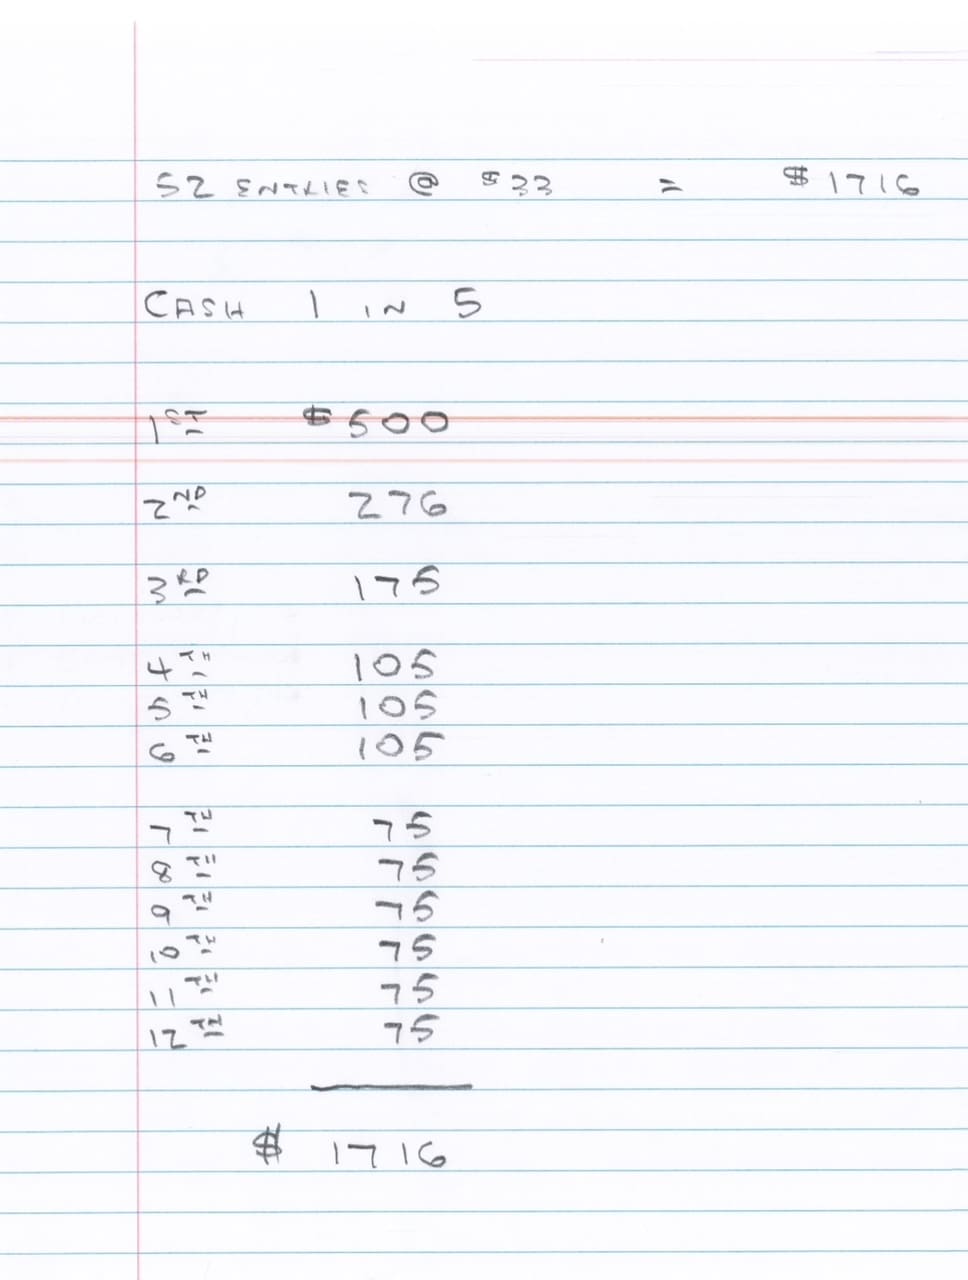 52 ENTRIES @ $33 = $1716
CASH 1 IN 5
1ST $500
2ND 276
3RD 175
4TH 105
5TH 105
6TH 105
7TH 75
8TH 75
9TH 75
10TH 75
11TH 75
12TH 75
$ 1716